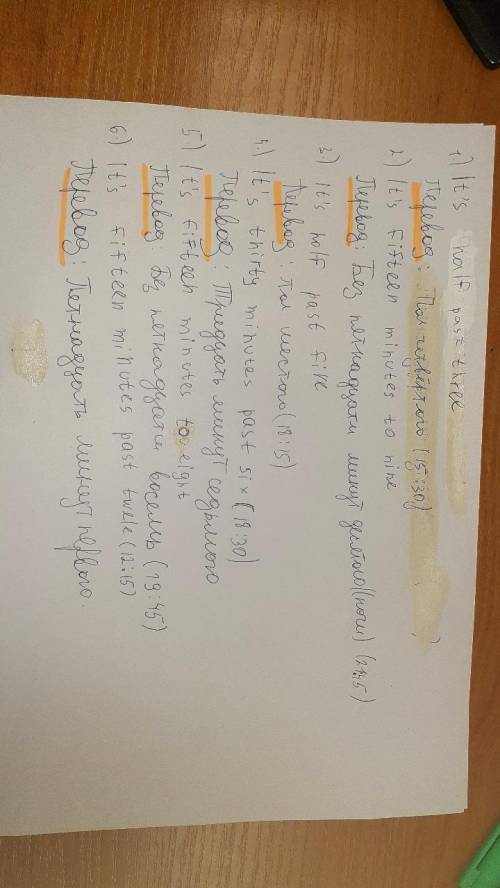 1) It's half past three
Перевод: Пол четвёртого (15:30)
2) It's fifteen minutes to nine
Перевод: Без пятнадцати минут девятого (ночи) (21:45)
3) It's half past five
Перевод: пол шестого (18:15)
4.) It's thirty minutes past six (18:30)
Перевод: Тридцать минут седьмого
5) It's fifteen minutes to eight
Перевод: Без пятнадцати восемь (19:45)
6) It's fifteen minutes past twele (12:15)
Перевод: Петнадцать минут первого.